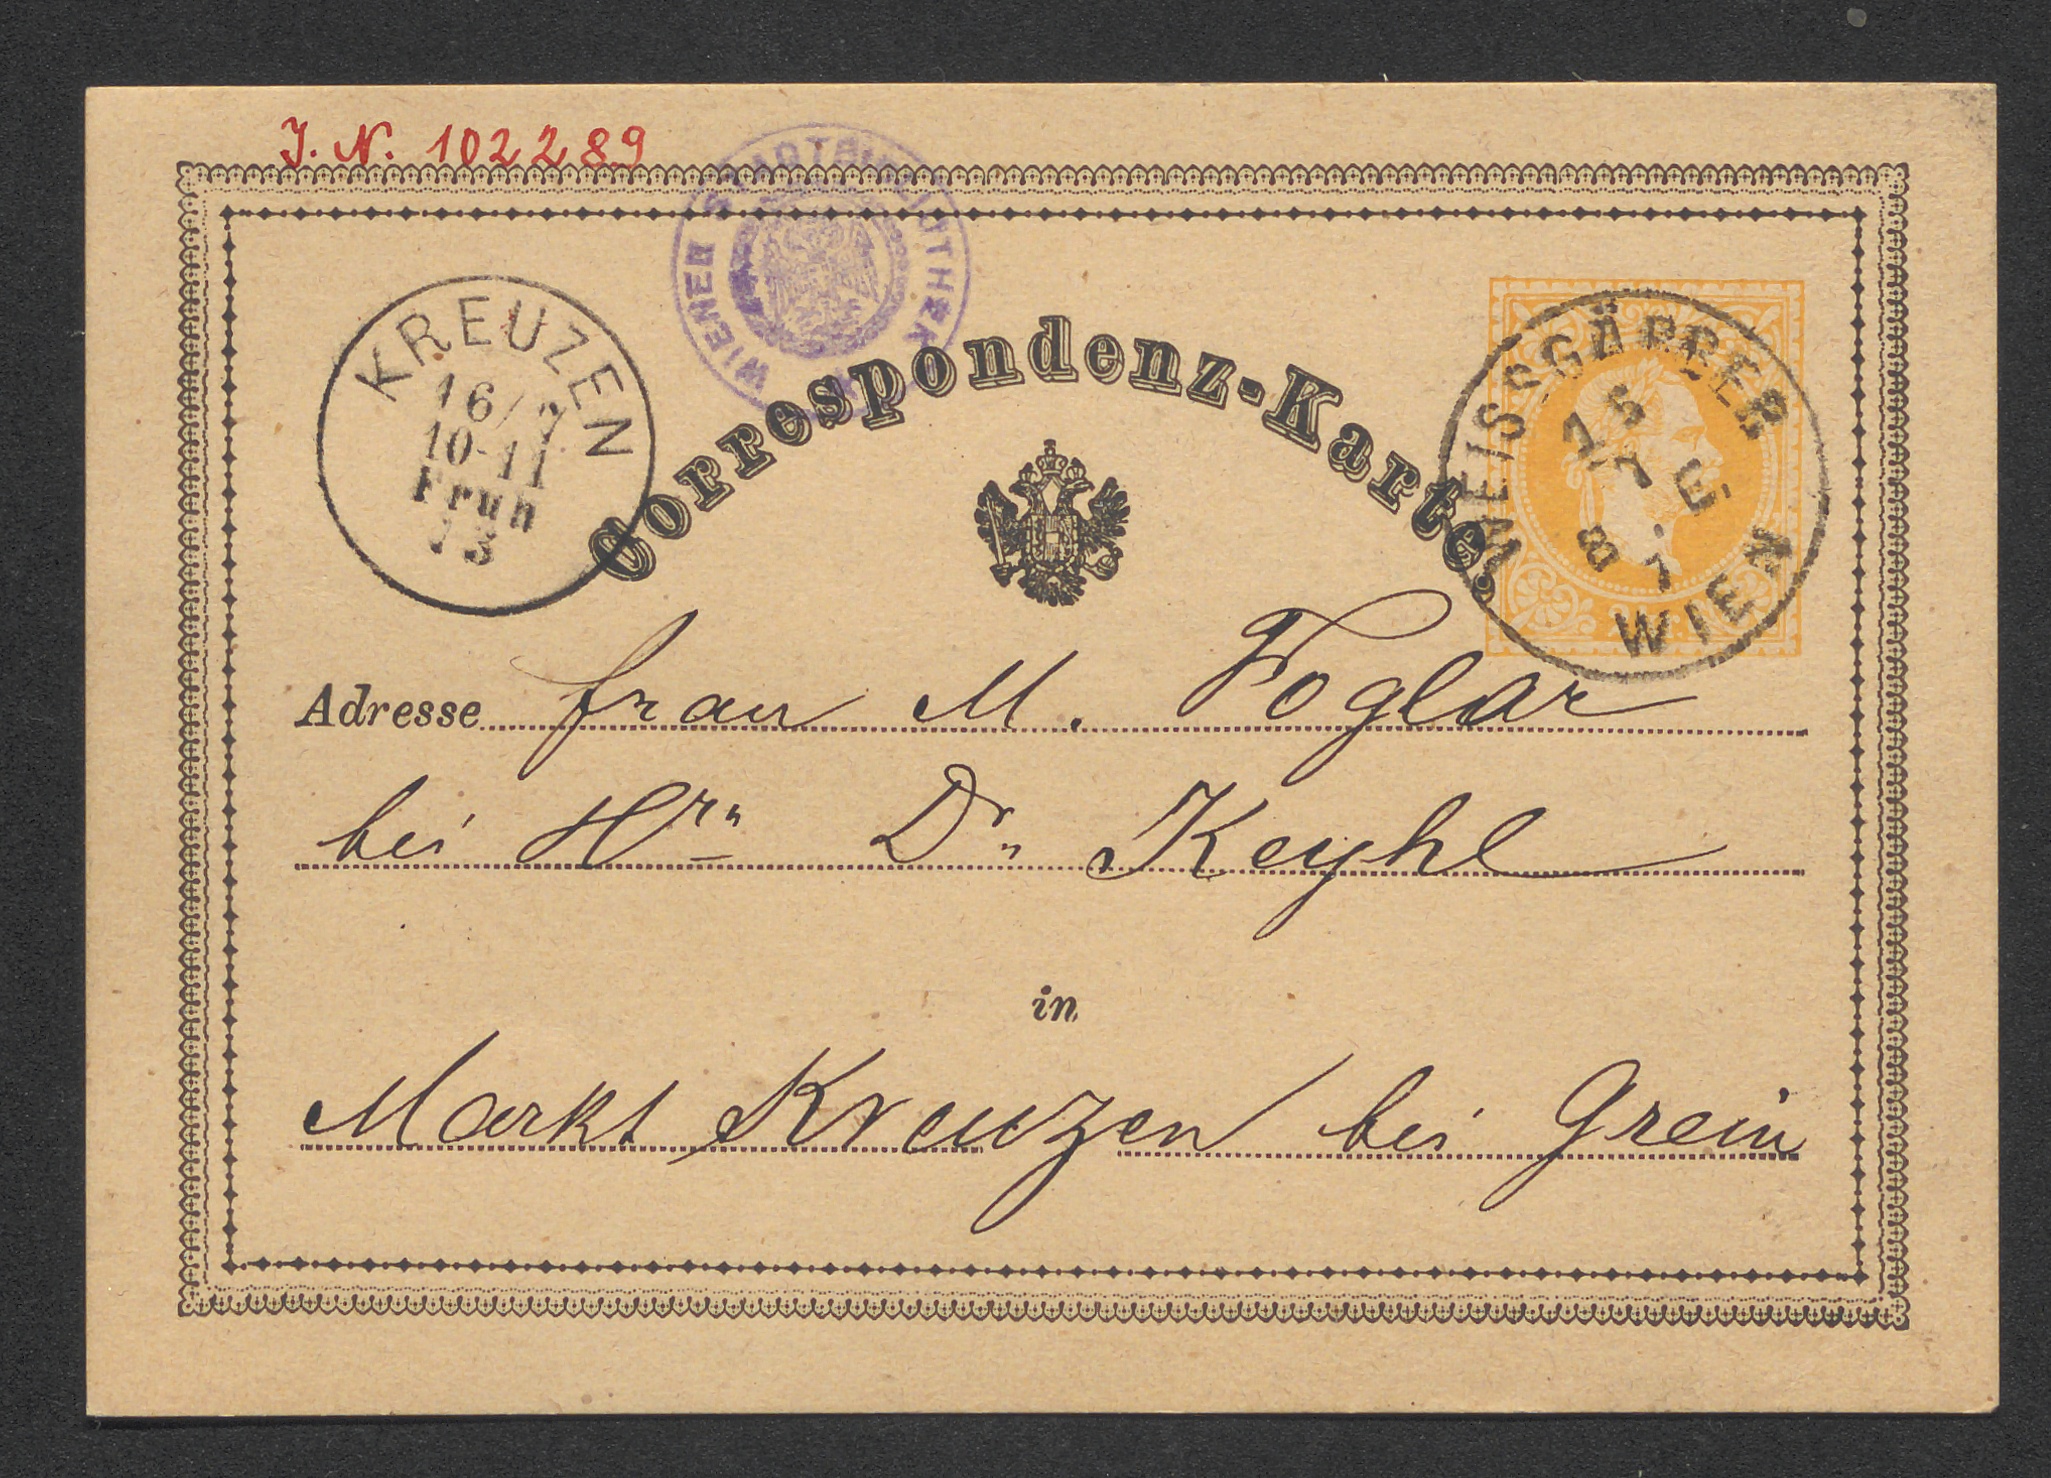 J. N. 102289
WIENER STADTBIBLIOTHEK
KREUZEN
16/7
10-11
Früh
73
Correspondenz-Karte.
WEISSGÄRBER
15
7
8
E
7
WIEN
Adresse Frau M. Foglar
bei Hrn Dr. Keyhl
in
Markt Kreuzen bei Grein